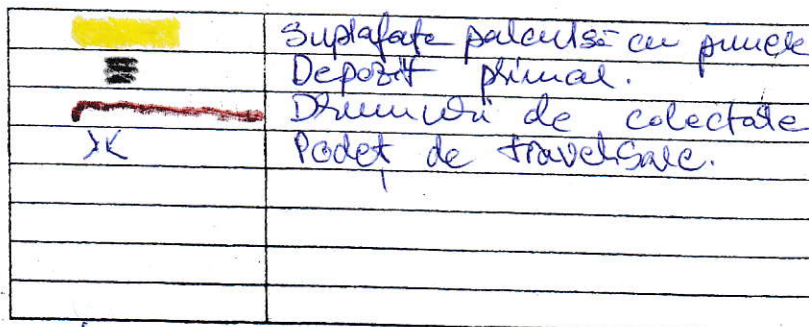 Suprafața parcursă cu puncte
Depozit primar.
Drumuri de colectare
Podeț de traversare.